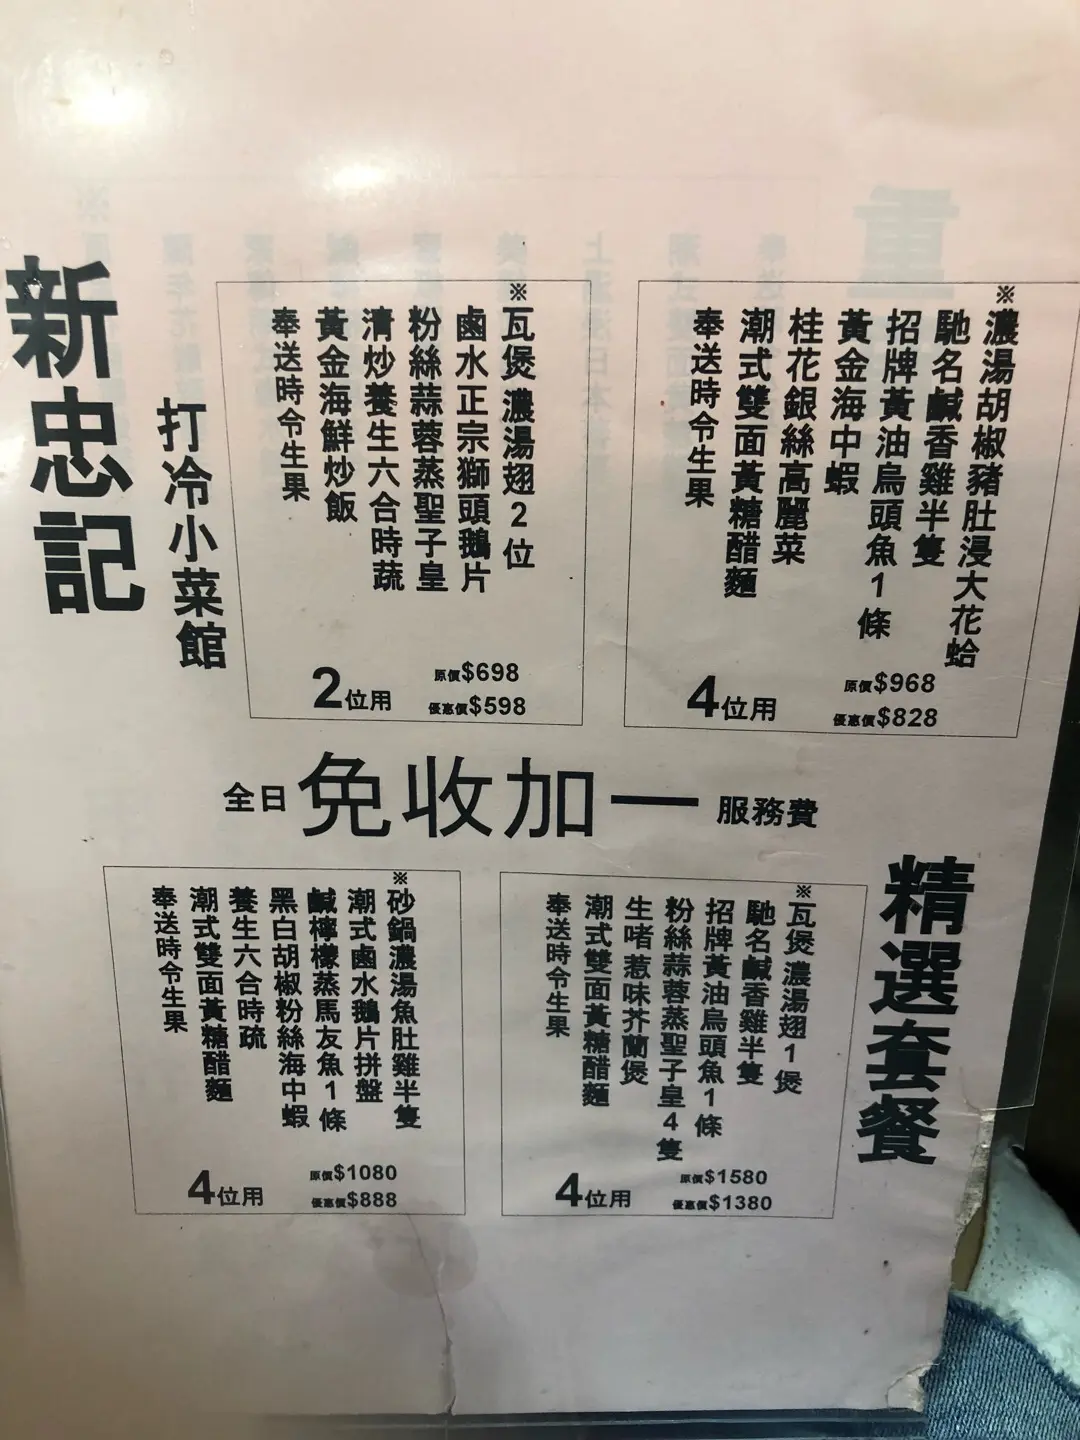 新忠記
打冷小菜館
※濃湯胡椒豬肚浸大花蛤
馳名鹹香雞半隻
招牌黃油烏頭魚1條
黃金海中蝦
桂花銀絲高麗菜
潮式雙面黃糖醋麵
奉送時令生果
4位用
原價$968
優惠價$828
※瓦煲濃湯翅2位
鹵水正宗獅頭鵝片
粉絲蒜蓉蒸聖子皇
清炒養生六合時蔬
黃金海鮮炒飯
奉送時令生果
2位用
原價$698
優惠價$598
全日免收加一服務費
精選套餐
※瓦煲濃湯翅1煲
馳名鹹香雞半隻
招牌黃油烏頭魚1條
粉絲蒜蓉蒸聖子皇4隻
生啫惹味芥蘭煲
潮式雙面黃糖醋麵
奉送時令生果
4位用
原價$1580
優惠價$1380
※砂鍋濃湯魚肚雞半隻
潮式鹵水鵝片拼盤
鹹檸檬蒸馬友魚1條
黑白胡椒粉絲海中蝦
養生六合時疏
潮式雙面黃糖醋麵
奉送時令生果
4位用
原價$1080
優惠價$888